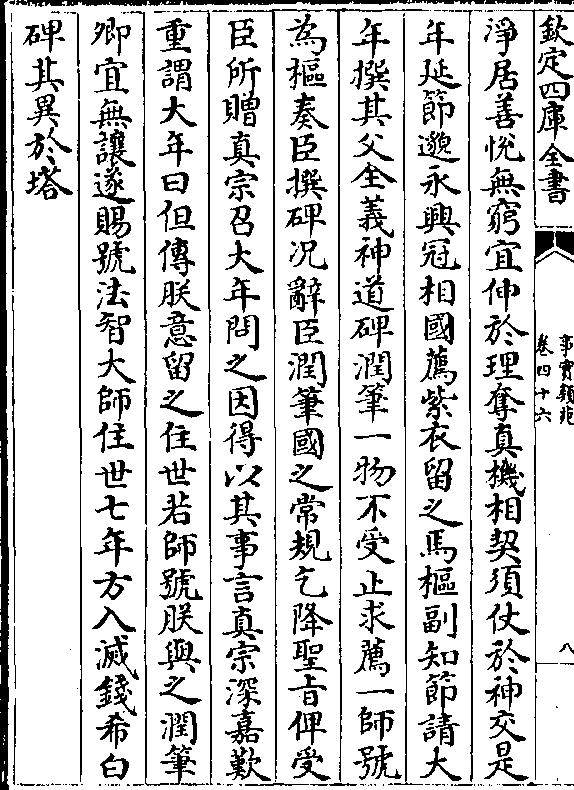 欽定四庫全書
事實類苑
卷四十六
八
淨居善悅無窮宜伸於理奪真機相契須仗於神交是
年延節邀永興冠相國薦紫衣留之馬樞副知節請大
年撰其父全義神道碑潤筆一物不受止求薦一師號
為樞奏臣撰碑況辭臣潤筆國之常規乞降聖旨俾受
臣所贈真宗召大年問之因得以其事言真宗深嘉歎
重謂大年曰但傳朕意留之住世若師號朕與之潤筆
卿宜無讓遂賜號法智大師住世七年方入滅錢希白
碑其異於塔